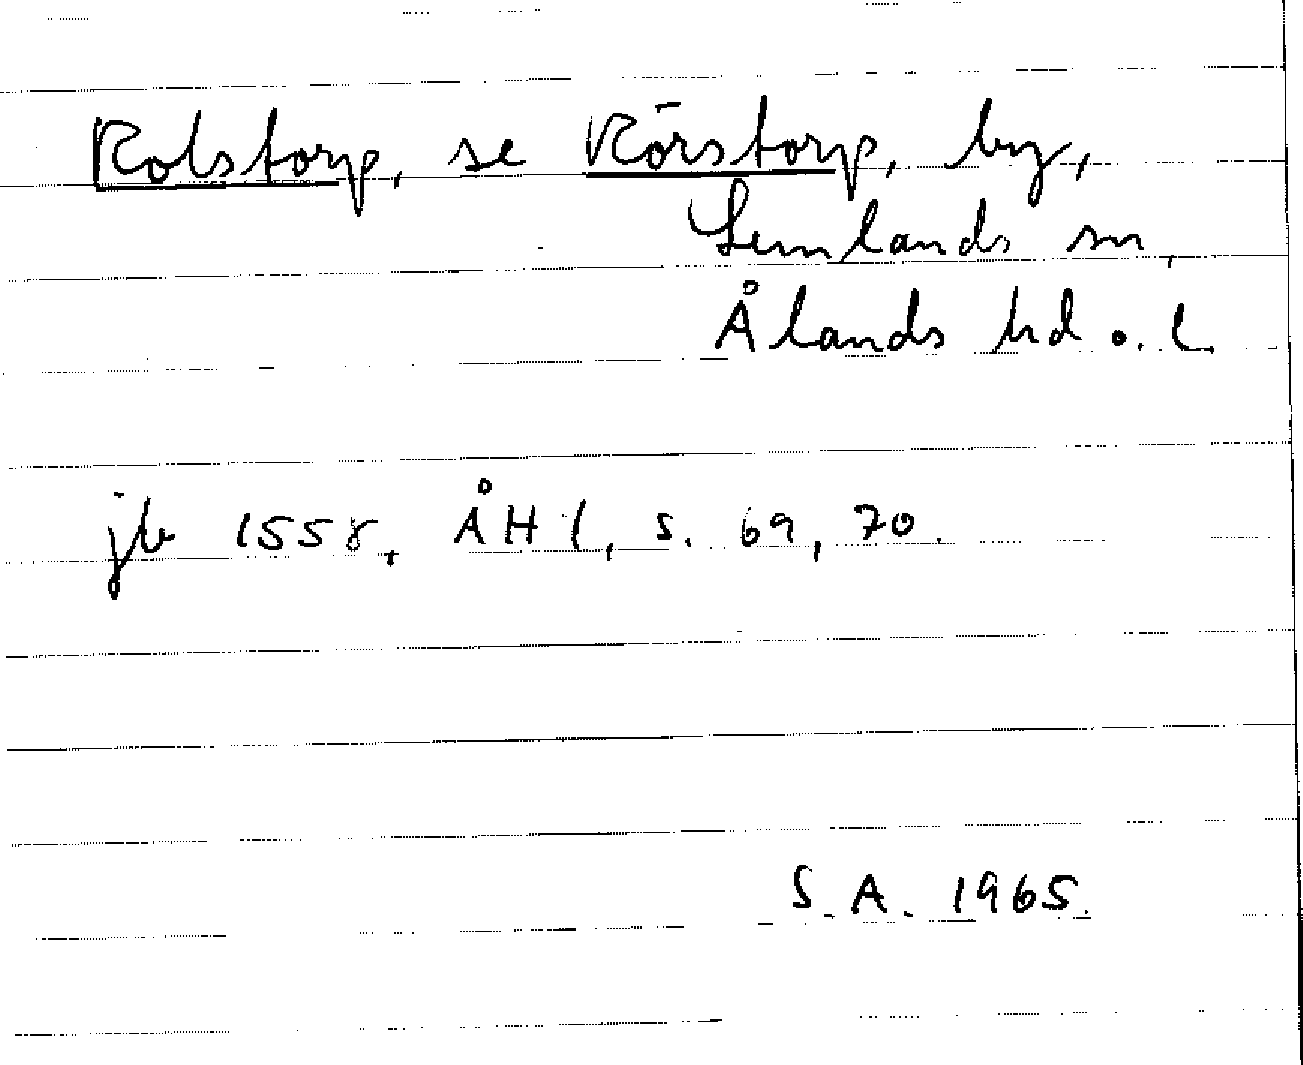 Rolstorp, se Rörstorp, by,
Lemlands sn,
Ålands hd o. l.
jb 1558, ÅH 1, s. 69, 70.
S. A. 1965.